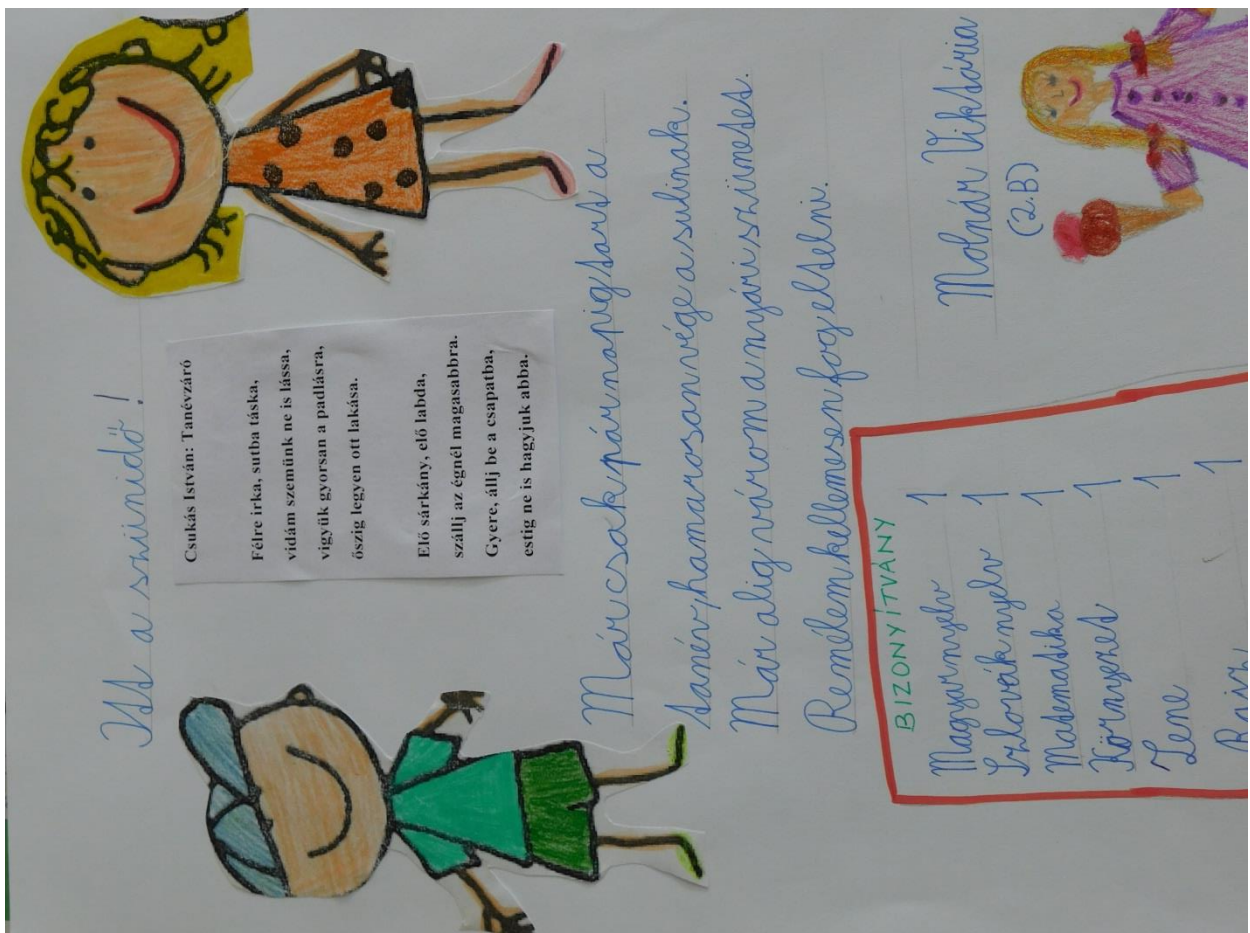 Itt a szünidő!
Csukás István: Tanévzáró
Félre irka, sutba táska,
vidám szemünk ne is lássa,
vigyük gyorsan a padlásra,
őszig legyen ott lakása.
Elő sárkány, elő labda,
szállj az égnél magasabbra.
Gyere, állj be a csapatba,
estig ne is hagyjuk abba.
Már csak pár napig tart a
tanév, hamarosan vége a sulinak.
Már alig várom a nyári szünetet.
Remélem kellemesen fog eltelni.
Molnár Viktória
(2.B)
BIZONYÍTVÁNY
Magyar nyelv 1
Szlovák nyelv 1
Matematika 1
Környezet 1
Zene 1
Rajz 1